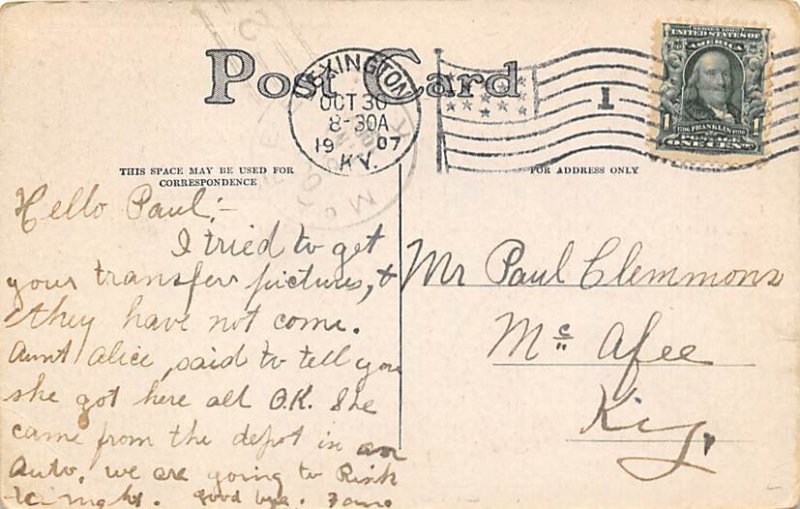 Post Card
LEXINGTON
OCT 30
8-30A
1907
KY.
1
SERIES 1902
UNITED STATES OF
AMERICA
1 FRANKLIN 1
ONE CENT
THIS SPACE MAY BE USED FOR
CORRESPONDENCE
FOR ADDRESS ONLY
Hello Paul:-
I tried to get
your transfer pictures, &
they have not come.
Aunt Alice, said to tell you
she got here all O.K. She
came from the depot in an
Auto, we are going to Rink
to night. Good bye.
Mr Paul Clemmons
Mc Afee
Ky.